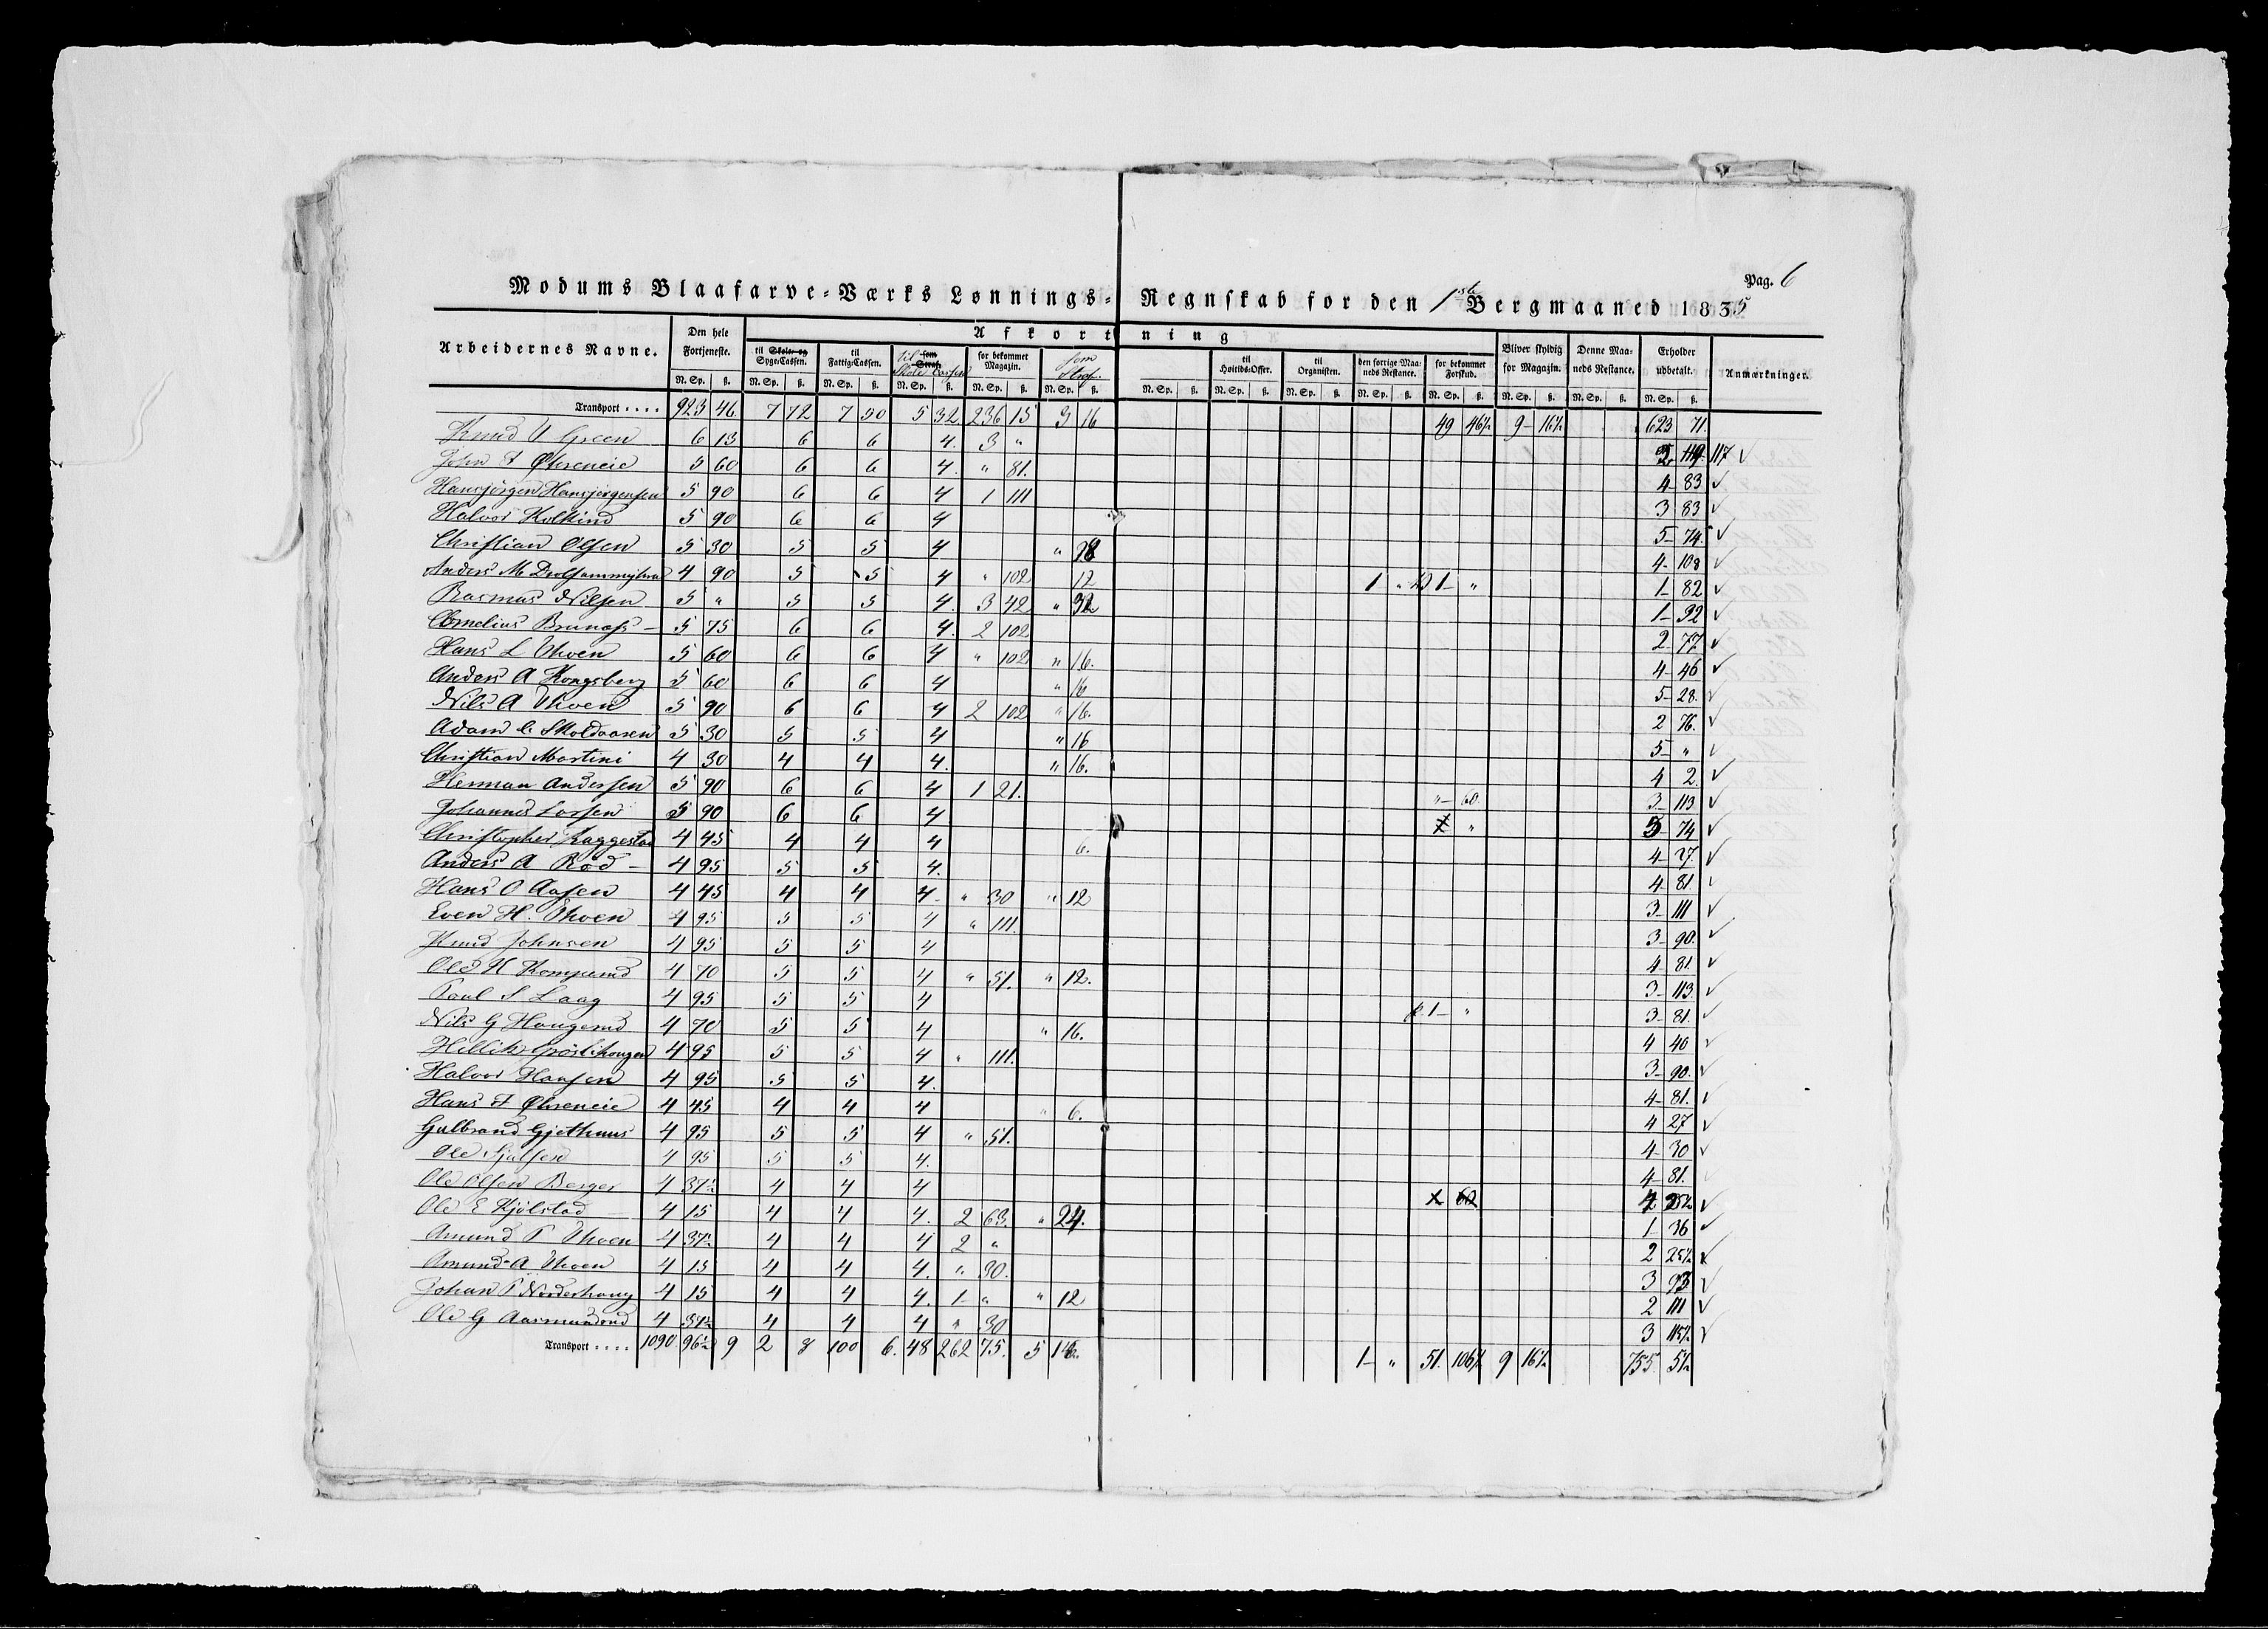 Pag. 6
Modums Blaafarve-Værks Lønnings- Regnskab for den 1ste Bergmaaned 1835
Arbeidernes Navne. Den hele Fortjeneste. Afkortning Bliver skyldig for Magazin. Denne Maaneds Restance. Erholder udbetalt. Anmærkninger.
til Skole- og Syge-Cassen. til Fattig-Cassen. til som Straf Skole Cassen for bekommet Magazin. som Straf. til Høitids-Offer. til Organisten. den forrige Maaneds Restance. for bekommet Forskud.
N. Sp. ß. N. Sp. ß. N. Sp. ß. N. Sp. ß. N. Sp. ß. N. Sp. ß. N. Sp. ß. N. Sp. ß. N. Sp. ß. N. Sp. ß. N. Sp. ß. N. Sp. ß. N. Sp. ß. N. Sp. ß.
Transport .... 923 46. 7 72 7 50 5 32. 236 15 3 16 49 46½ 9- 16½ 623 71.
Knud Green 6 13 6 6 4. 3 " 2 117 ✓
John Øhreneie 5 60 6 6 4. " 81. 4- 83 ✓
Hansjørgen Hansjørgensen 5 90 6 6 4 1 111 3 83 ✓
Halvor Kolkind 5 90 6 6 4 5- 74. ✓
Christian Olsen 5 30 5 5 4 " 4- 108 ✓
Anders M 4 90 5 5 4 " 102 12 1 " 1- " 1- 82 ✓
Rasmus Nilsen 5 " 5 5 4. 3 42 " 32 1- 92 ✓
Cornelius Brunass - 5 75 6 6 4. 2 102 2- 77 ✓
Hans L Thoen 5 60 6 6 4 " 102 " 16. 4- 46 ✓
Anders A Kongsberg 5 60 6 6 4 " 16 5- 28. ✓
Nils A Thoen 5 90 6 6 4 2 102 " 16. 2 76. ✓
Adam C Skoldaasen 5 30 5 5 4 " 16 5- " ✓
Christian Martini 4 30 4 4 4. " 16. 4 2. ✓
Herman Andersen 5 90 6 6 4 1 21. "- 60. 3- 113 ✓
Johannes Larsen 5 90 6 6 4 " 5- 74 ✓
Christopher Kaggestad 4 45 4 4 4 6. 4- 27. ✓
Anders A Rød - 4 95 5 5 4. 4- 81. ✓
Hans O Aasen 4 45 4 4 4- " 30 " 12 3- 111 ✓
Even H. Thoen 4 95 5 5 4 " 111. 3- 90. ✓
Knud Johnsen 4 95 5 5 4 4- 81. ✓
Ole H Komperud 4 70 5 5 4 " 51. " 12. 3- 113. ✓
Poul S Laag 4 95 5 5 4 1- " 3- 81. ✓
Nils G Haugerud 4 70 5 5 4 " 16. 4 40 ✓
Hellik Grøslihaugen 4 95 5 5 4 " 111. 3- 90. ✓
Halvor Hansen 4 95 5 5 4. 4- 81. ✓
Hans Øhreneie 4 45 4 4 4 " 6. 4 27 ✓
Gulbrand Gjethuus 4 95 5 5 4 " 51. 4- 30 ✓
Ole 4 95 5 5 4. 4- 81.
Ole Olsen Berger 4 37½ 4 4 4 4 25½ ✓
Ole E Kjølstad 4 15 4 4 4. 2 63. " 24. 1- 36 ✓
Amund P Thoen 4 37½ 4 4 4 2 " 2 25½ ✓
Amund A Thoen 4 15 4 4 4. " 30. 3 93 ✓
Johan P Nordenhaug 4 15 4 4 4. 1- " " 12 2 111 ✓
Ole G Aasmundrud 4 37½ 4 4 4 " 30 3 115½ ✓
Transport .... 1090. 96½ 9 2 8 100 6. 48 262 75. 5 14. 1- " 51. 106½ 9 16½ 755. 5½